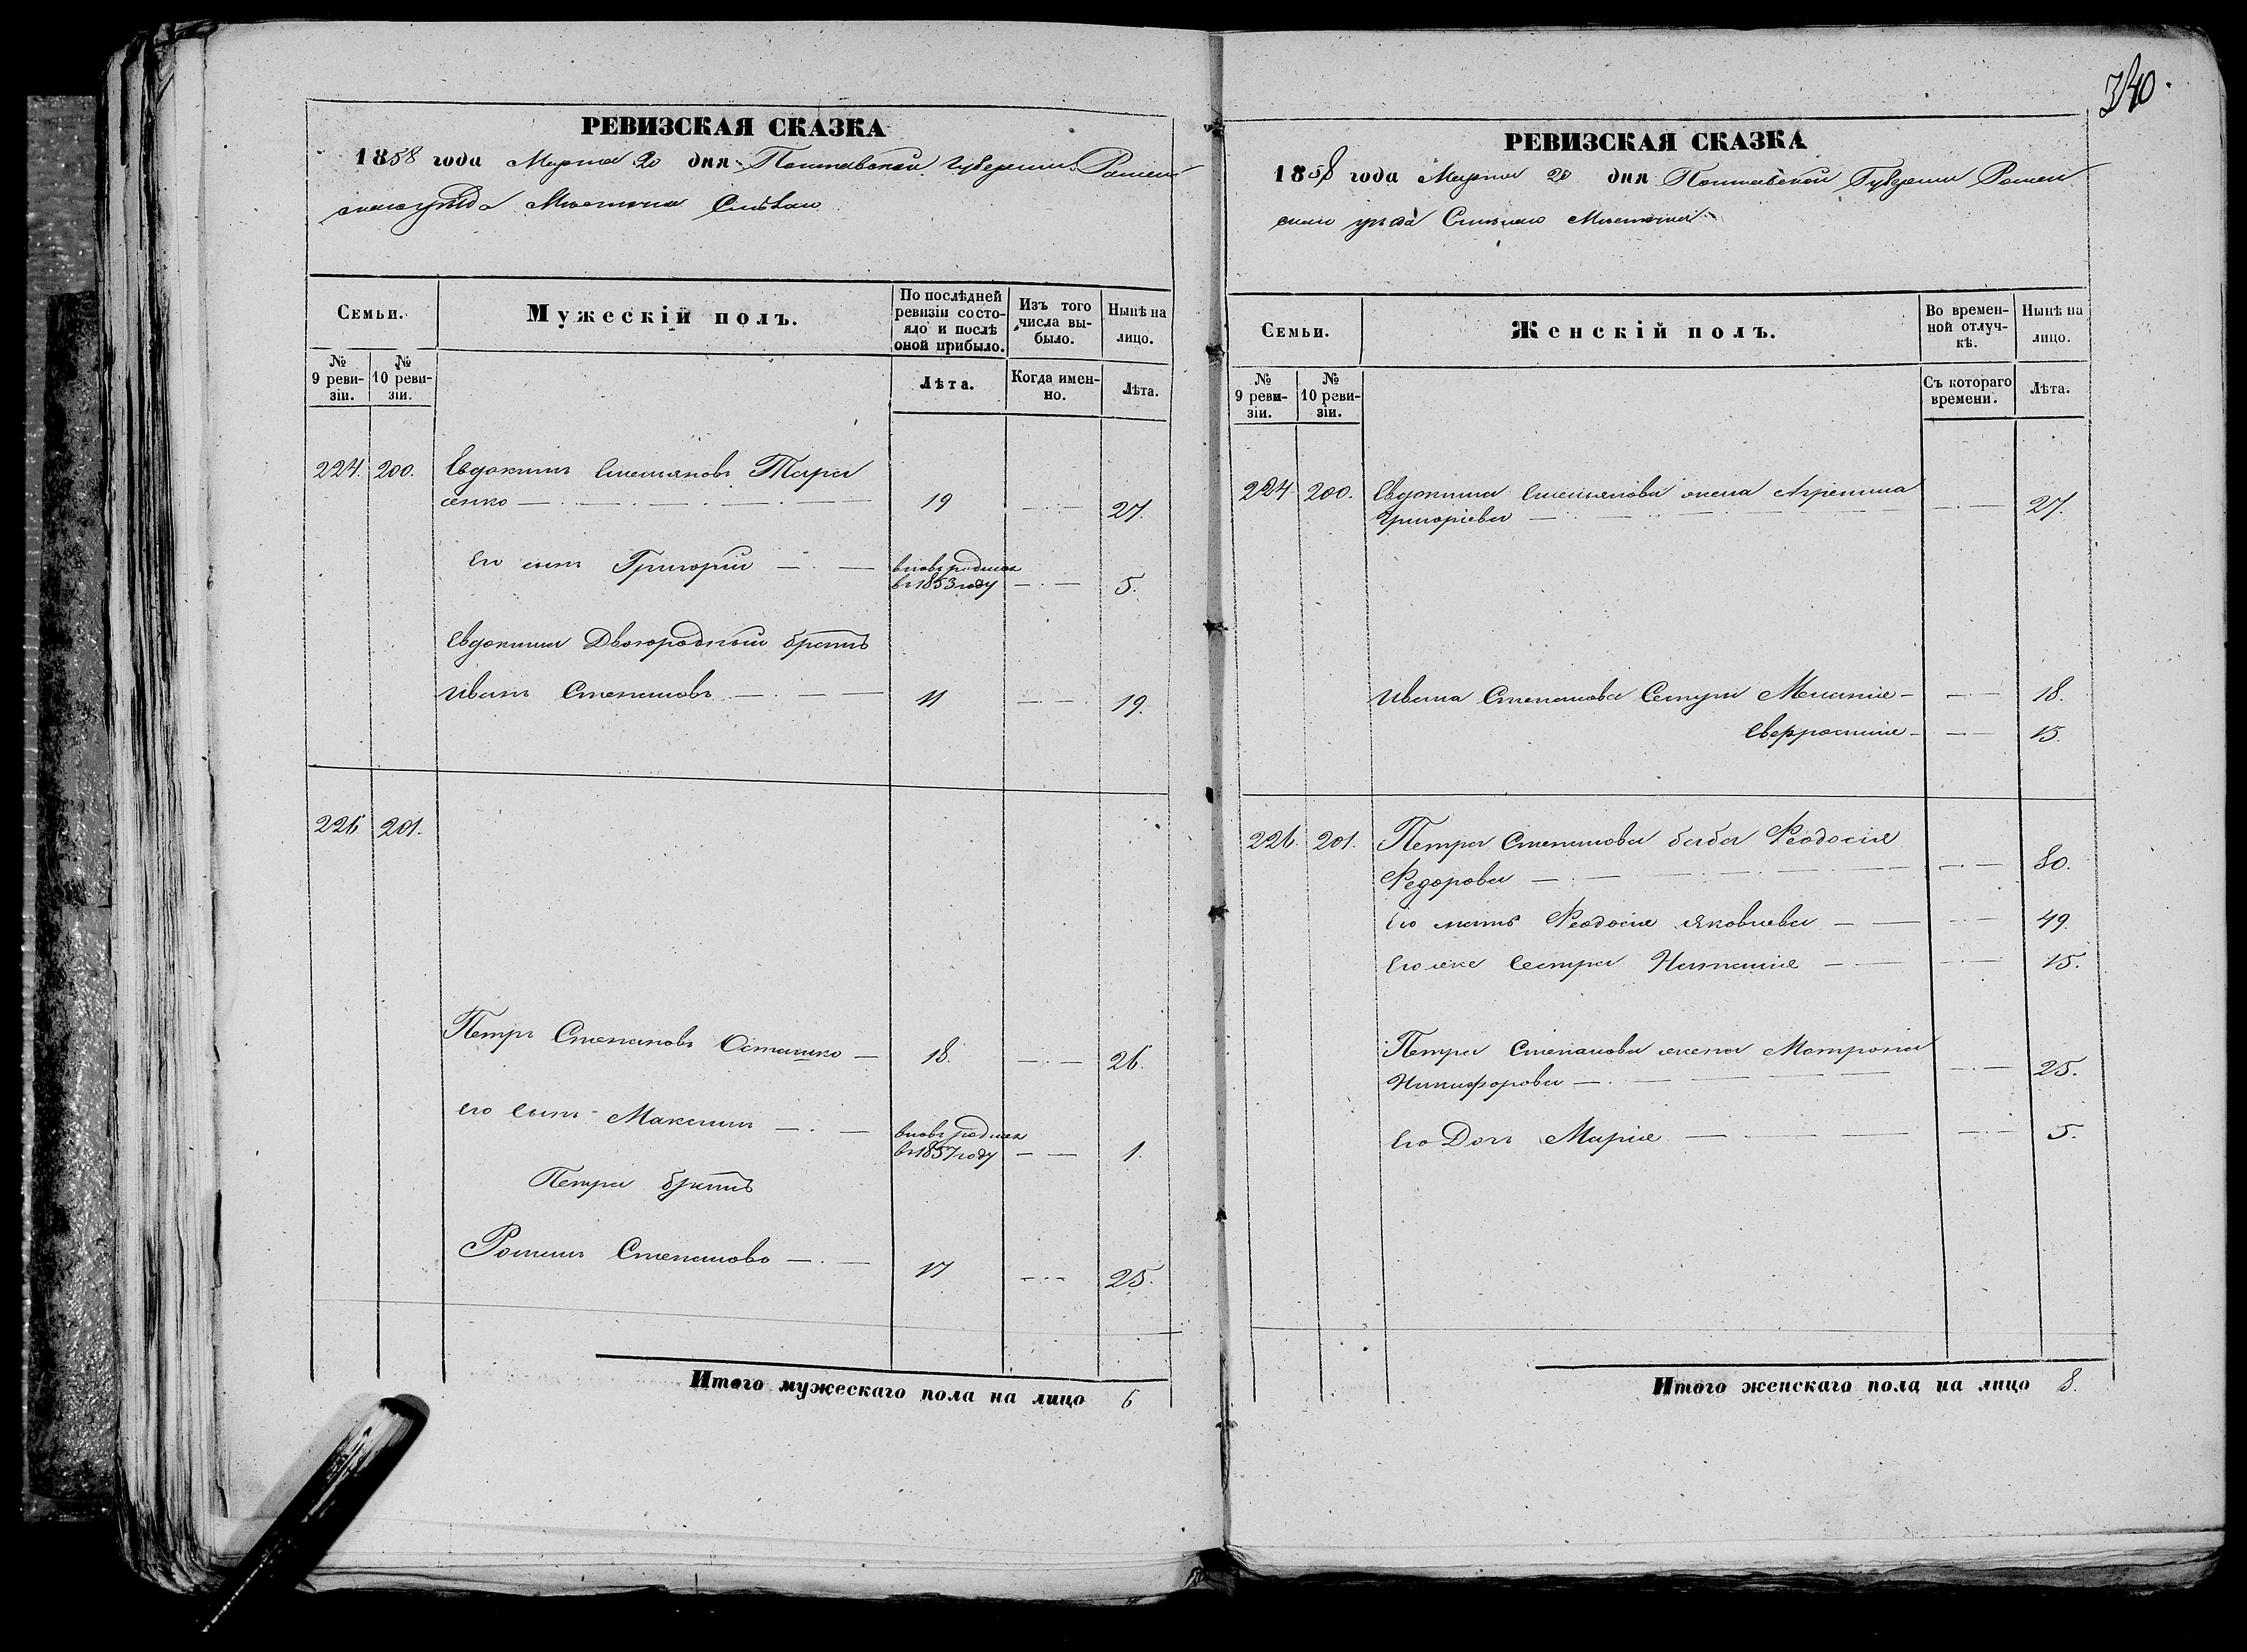 РЕВИЗСКАЯ СКАЗКА
1858 года Марта 20 дня Полтавской Губернии Ромен
скаго уѣзда Мѣстечка
Семьи.
Мужескій полъ.
По послѣдней ревизіи состояло и послѣ оной прибыло.
Изъ того числа выбыло.
Нынѣ на лицо.
№ 9 ревизіи.
№ 10 ревизіи.
Лѣта.
Когда именно.
Лѣта.
224. 200. Евдокимъ Емельяновъ Тара
сенко — 19 — 27.
Его сынъ Григорій — вновь рожден
въ 1853 году — 5.
Евдокима Двоюродный братъ
Иванъ Степановъ — 11 — 19.
226 201.
Петръ Степановъ Осташко — 18. — 26.
Его сынъ Максимъ — вновь рожден
въ 1857 году — 1.
Петра братъ
Романъ Степановъ — 17 — 25.
Итого мужескаго пола на лицо 6
340.
РЕВИЗСКАЯ СКАЗКА
1858 года Марта 20 дня Полтавской Губерніи Ромен
скаго уѣзда Мѣстечка
Семьи.
Женскій полъ.
Во временной отлучкѣ.
Нынѣ на лицо.
№ 9 ревизіи.
№ 10 ревизіи.
Съ котораго времени.
Лѣта.
224. 200. Евдокима Емельянова жена Агрепина
Григоріева — 27.
Ивана Степанова Сестры Меланія — 18.
Евфросинія — 15.
226. 201. Петра Степанова баба Феодосія
Федорова — 80.
Его мать Феодосія Яковлева — 49.
Его же Сестра Наталія — 15.
Петра Степанова жена Матрона
Никифорова — 25.
Его Дочь Марія — 5.
Итого женскаго пола на лицо 8.